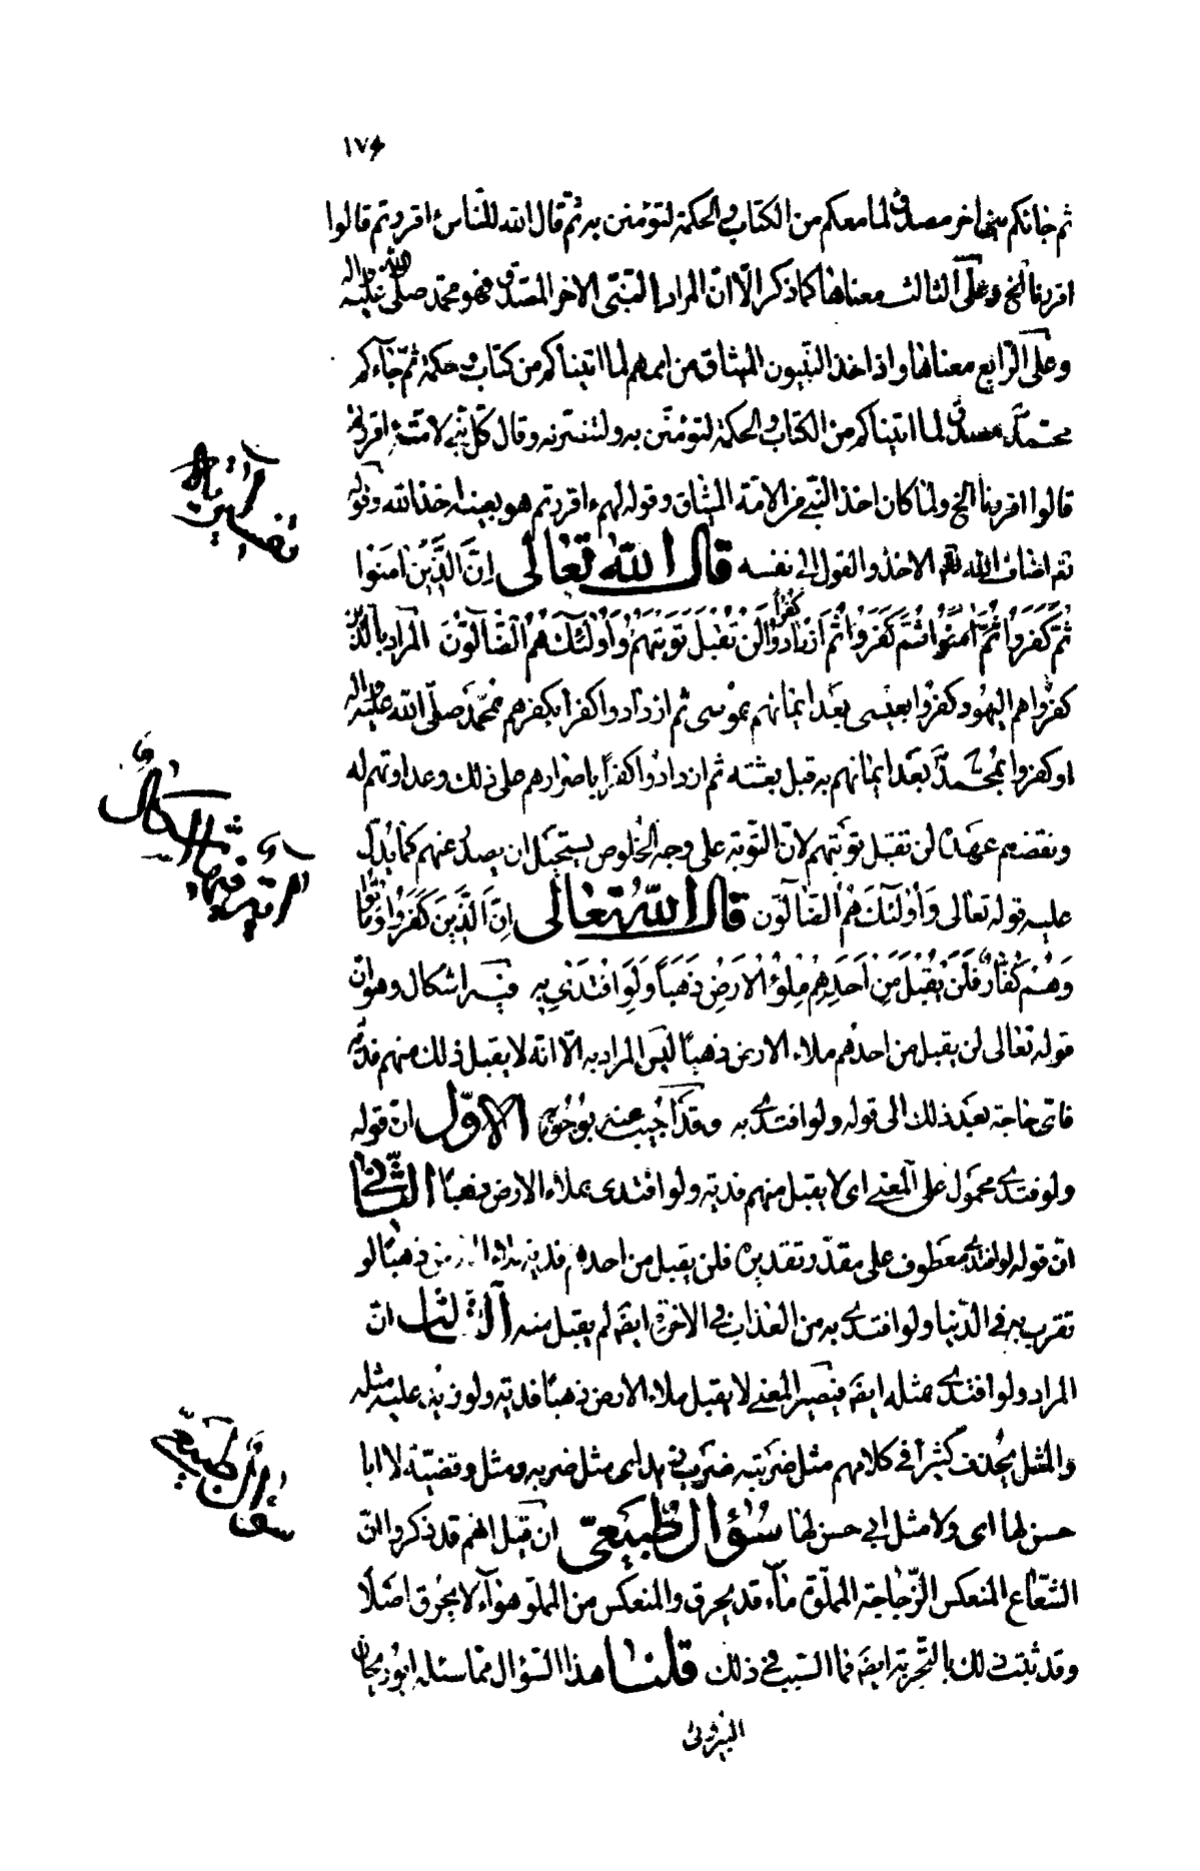 ١٧۶
ثم جائكم نبى اخر مصدق لما معكم من الكتاب والحكمة لتؤمنن به ثم قال الله للناس ءاقررتم قالوا
اقررنا الخ وعلى الثالث معناها كما ذكر الّا انّ المراد بالنبىّ الاخر المصدق فهو محمّد صلّى الله عليه واله
وعلى الرّابع معناها واذا اخذ النبيون الميثاق من اممهم لما اتيناكم من كتاب وحكمة ثمّ جآءكم
محمّد مصدق لما اتيناكم من الكتاب والحكمة لتؤمننّ به ولتنصرنه وقال كلّ نبى لامته ءاقررتم
قالوا اقررنا الخ ولما كان اخذ النبى من الامّة الميثاق وقوله لهم ءاقررتم هو بعينه اخذ الله وقوله
ثم اضاف الله الاخذ والقول الى نفسه قال الله تعالى اِنَّ الَّذينَ امَنوُا
ثُمَّ كَفَرَوُا ثُمَّ امَنُوا ثُمَّ كَفَرَوُا ثُمَّ ازْدٰادوُا كُفْراً لَنْ تُقْبَلَ تَوْبَتَهُمْ وَاُولٰئِكَ هُمُ الضّآلوُّنَ المراد بالذين
كفروا هم اليهود كفروا بعيسى بعد ايمانهم بموسى ثم ازدادوا كفراً بكفرهم بمحمّد صلّى الله عليه واله
او كفروا بمحمد بعد ايمانهم به قبل بعثته ثم ازدادوا كفراً باصرارهم على ذلك وعداوتهم له
ونقضهم عهده لن تقبل توبتهم لانّ التّوبة على وجه الخلوص يستحيل ان يصدر عنهم كما يدل
عليه قوله تعالى وَاُولٰئِكَ هُمُ الضّآلوّن قال الله تعالى اِنَّ الَّذينَ كَفَروُا وَمٰاتوُا
وَهُمْ كُفّٰارٌ فَلَنْ يُقْبَلَ مِنْ اَحَدِهِمْ مِلْؤُ الْاَرْضِ ذَهَباً وَلَوِ افْتَدٰى بِهِ فيه اشكال وهو ان
قوله تعالى لن يقبل من احدهم ملاء الارض ذهباً ليس المراد به الّا انّه لا يقبل ذلك منهم فدية
فاى حاجة بعد ذلك الى قوله ولو افتدى به وقد اجيب عنه بوجوه الاوّل انّ قوله
ولو فتدى محمول على المعنى اى لا يقبل منهم فدية ولو افتدى بملاء الارض ذهباً الثّانى
انّ قوله لو افتدى معطوف على مقدّر وتقديره فلن يقبل من احدهم فدية ملاء الارض ذهباً لو
تقرب به فى الدّنيا ولو افتدى به من العذاب فى الاخرة ايضَ لم يقبل منه الثّالث انّ
المراد ولو افتدى بمثله ايضَ فيصير المعنى لا يقبل ملاء الارض ذهباً فدية ولو زيد عليه مثله
والمثل يحذف كثيراً فى كلامهم مثل ضربته ضرب زيد اى مثل ضربه ومثل وقضيّة لا ابا
حسن لها اى ولا مثل ابى حسن لها سؤال طبيعىّ ان قيل انهم قد ذكروا انّ
الشّعاع المنعكس الزّجاجة المملّوة مآء قد يحرق والمنعكس من المملّو هوآء لا يحرق اصلاً
وقد ثبت ذلك بالتّجربة ايضَ فما السّبب فى ذلك قلنا هذا السّؤال ممّا سئله ابوريحان
البيرونى
تفسير آية
آية فيها اشكال
سؤال طبيعىّ